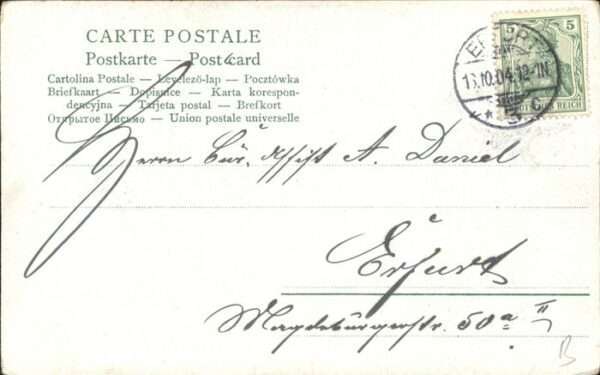 CARTE POSTALE
Postkarte — Post card
Cartolina Postale — Levelező-lap — Pocztówka
Briefkaart — Dopisnice — Karta korespon-
dencyjna — Tarjeta postal — Brefkort
Открытое Письмо — Union postale universelle
5 5
ERFURT
13.10.04.12-1N
DEUTSCHES REICH
* 5 c.
Herrn Bür. Assist A. Daniel
Erfurt
Magdeburgerstr. 50a II
B